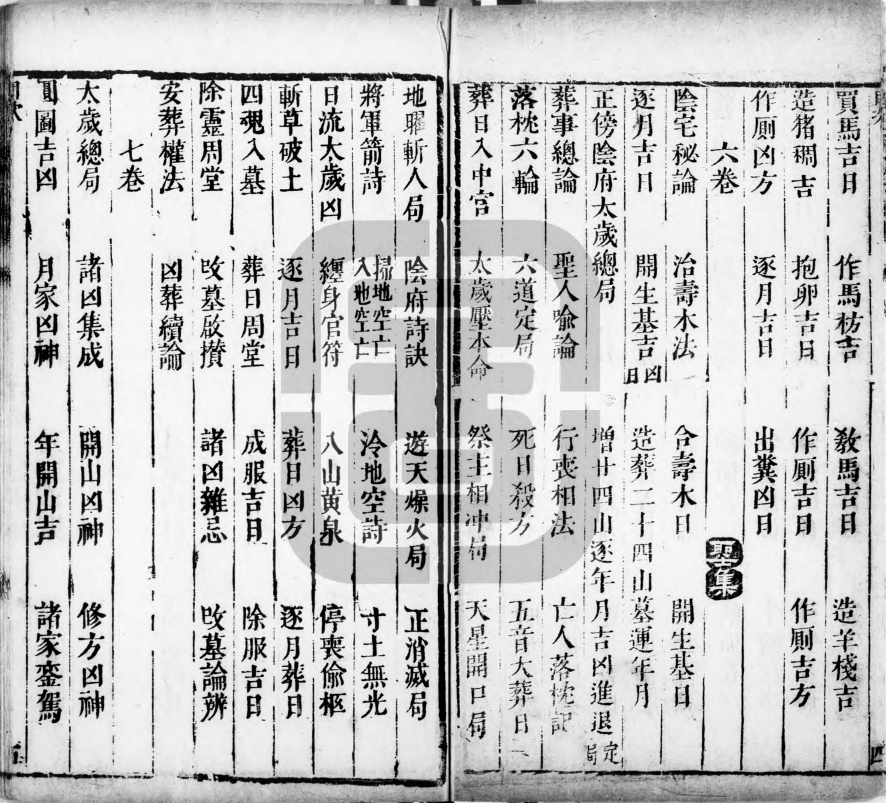 買馬吉日 作馬枋吉 教馬吉日 造羊棧吉
造猪稠吉 抱卵吉日 作厠吉日 作厠吉方
作厠凶方 逐月吉日 出糞凶日
六卷
陰宅秘論 治壽木法 合壽木日 開生基日
逐月吉日 開生基吉凶日 造葬二十四山墓運年月
正傍陰府太歲總局 增廿四山逐年月吉凶進退定局
葬事總論 聖人喩論 行喪相法 亡人落枕記
落枕六輪 六道定局 死日殺方 五音大葬日
葬日入中宮 太歲壓本命 祭主相冲局 天星開口局
地曜斬人局 陰府詩訣 遊天燥火局 正消滅局
將軍箭詩 掃地空亡 入地空亡 冷地空詩 寸土無光
日流太歲凶 纏身官符 八山黄泉 停喪偷柩
斬草破土 逐月吉日 葬日凶方 逐月葬日
四魂入墓 葬日周堂 成服吉日 除服吉日
除靈周堂 改墓啟攢 諸凶雜忌 改墓論辨
安葬權法 凶葬續論
七卷
太歲總局 諸凶集成 開山凶神 修方凶神
圓圖吉凶 月家凶神 年開山吉 諸家鑾駕
五